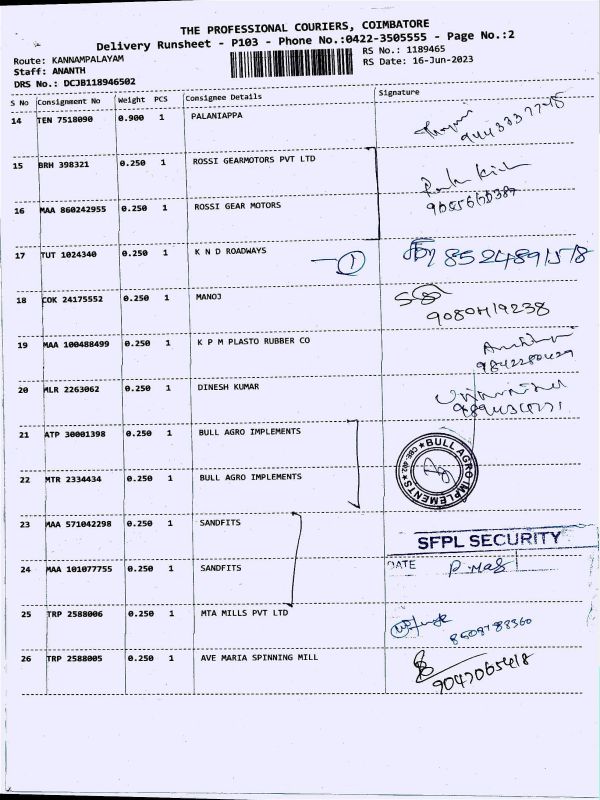 THE PROFESSIONAL COURIERS, COIMBATORE
Delivery Runsheet - P103 - Phone No.:0422-3505555 - Page No.:2
Route: KANNAMPALAYAM
RS No.: 1189465
Staff: ANANTH
RS Date: 16-Jun-2023
DRS No.: DCJB118946502
S No Consignment No Weight PCS Consignee Details Signature
14 TEN 7518090 0.900 1 PALANIAPPA
9443337745
15 BRH 398321 0.250 1 ROSSI GEARMOTORS PVT LTD
16 MAA 860242955 0.250 1 ROSSI GEAR MOTORS
17 TUT 1024340 0.250 1 K N D ROADWAYS 1 8524891578
18 COK 24175552 0.250 1 MANOJ
19 MAA 100488499 0.250 1 K P M PLASTO RUBBER CO
9842280429
20 MLR 2263062 0.250 1 DINESH KUMAR
21 ATP 30001398 0.250 1 BULL AGRO IMPLEMENTS
BULL AGRO IMPLEMENTS
22 MTR 2334434 0.250 1 BULL AGRO IMPLEMENTS
23 MAA 571042298 0.250 1 SANDFITS
SFPL SECURITY
24 MAA 101077755 0.250 1 SANDFITS
DATE
25 TRP 2588006 0.250 1 MTA MILLS PVT LTD
26 TRP 2588005 0.250 1 AVE MARIA SPINNING MILL
9047065418